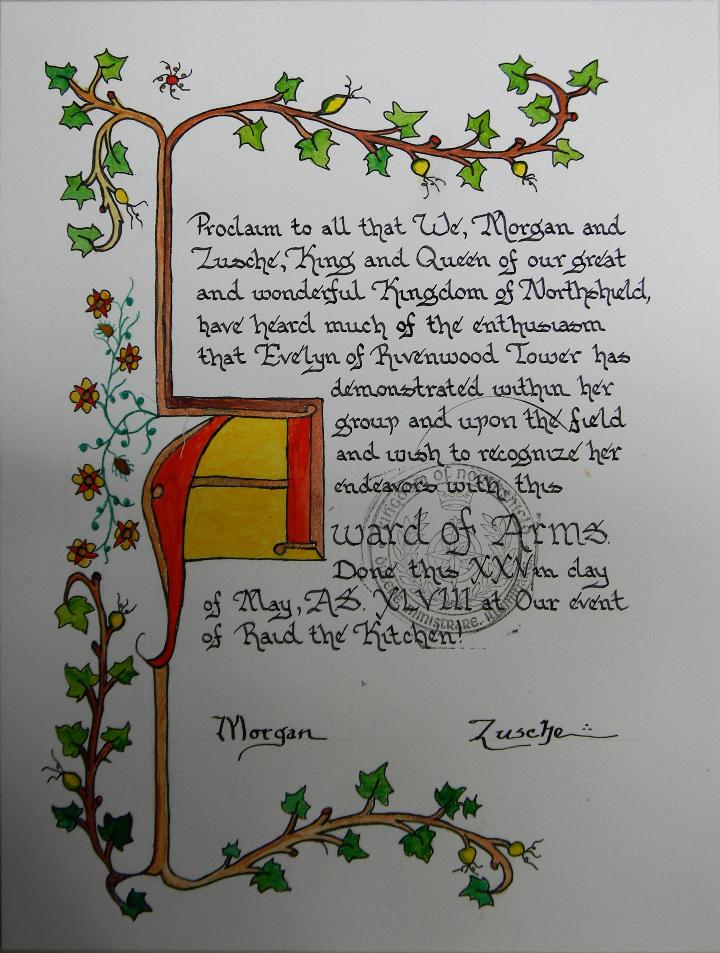 Proclaim to all that We, Morgan and
Zusche, King and Queen of our great
and wonderful Kingdom of Northshield,
have heard much of the enthusiasm
that Evelyn of Rivenwood Tower has
demonstrated within her
group and upon the field
and wish to recognize her
endeavors with this
Award of Arms.
Done this XXV day
of May, A.S. XLVIII at Our event
of Raid the Kitchen!
Morgan Zusche
kingdom of northshield